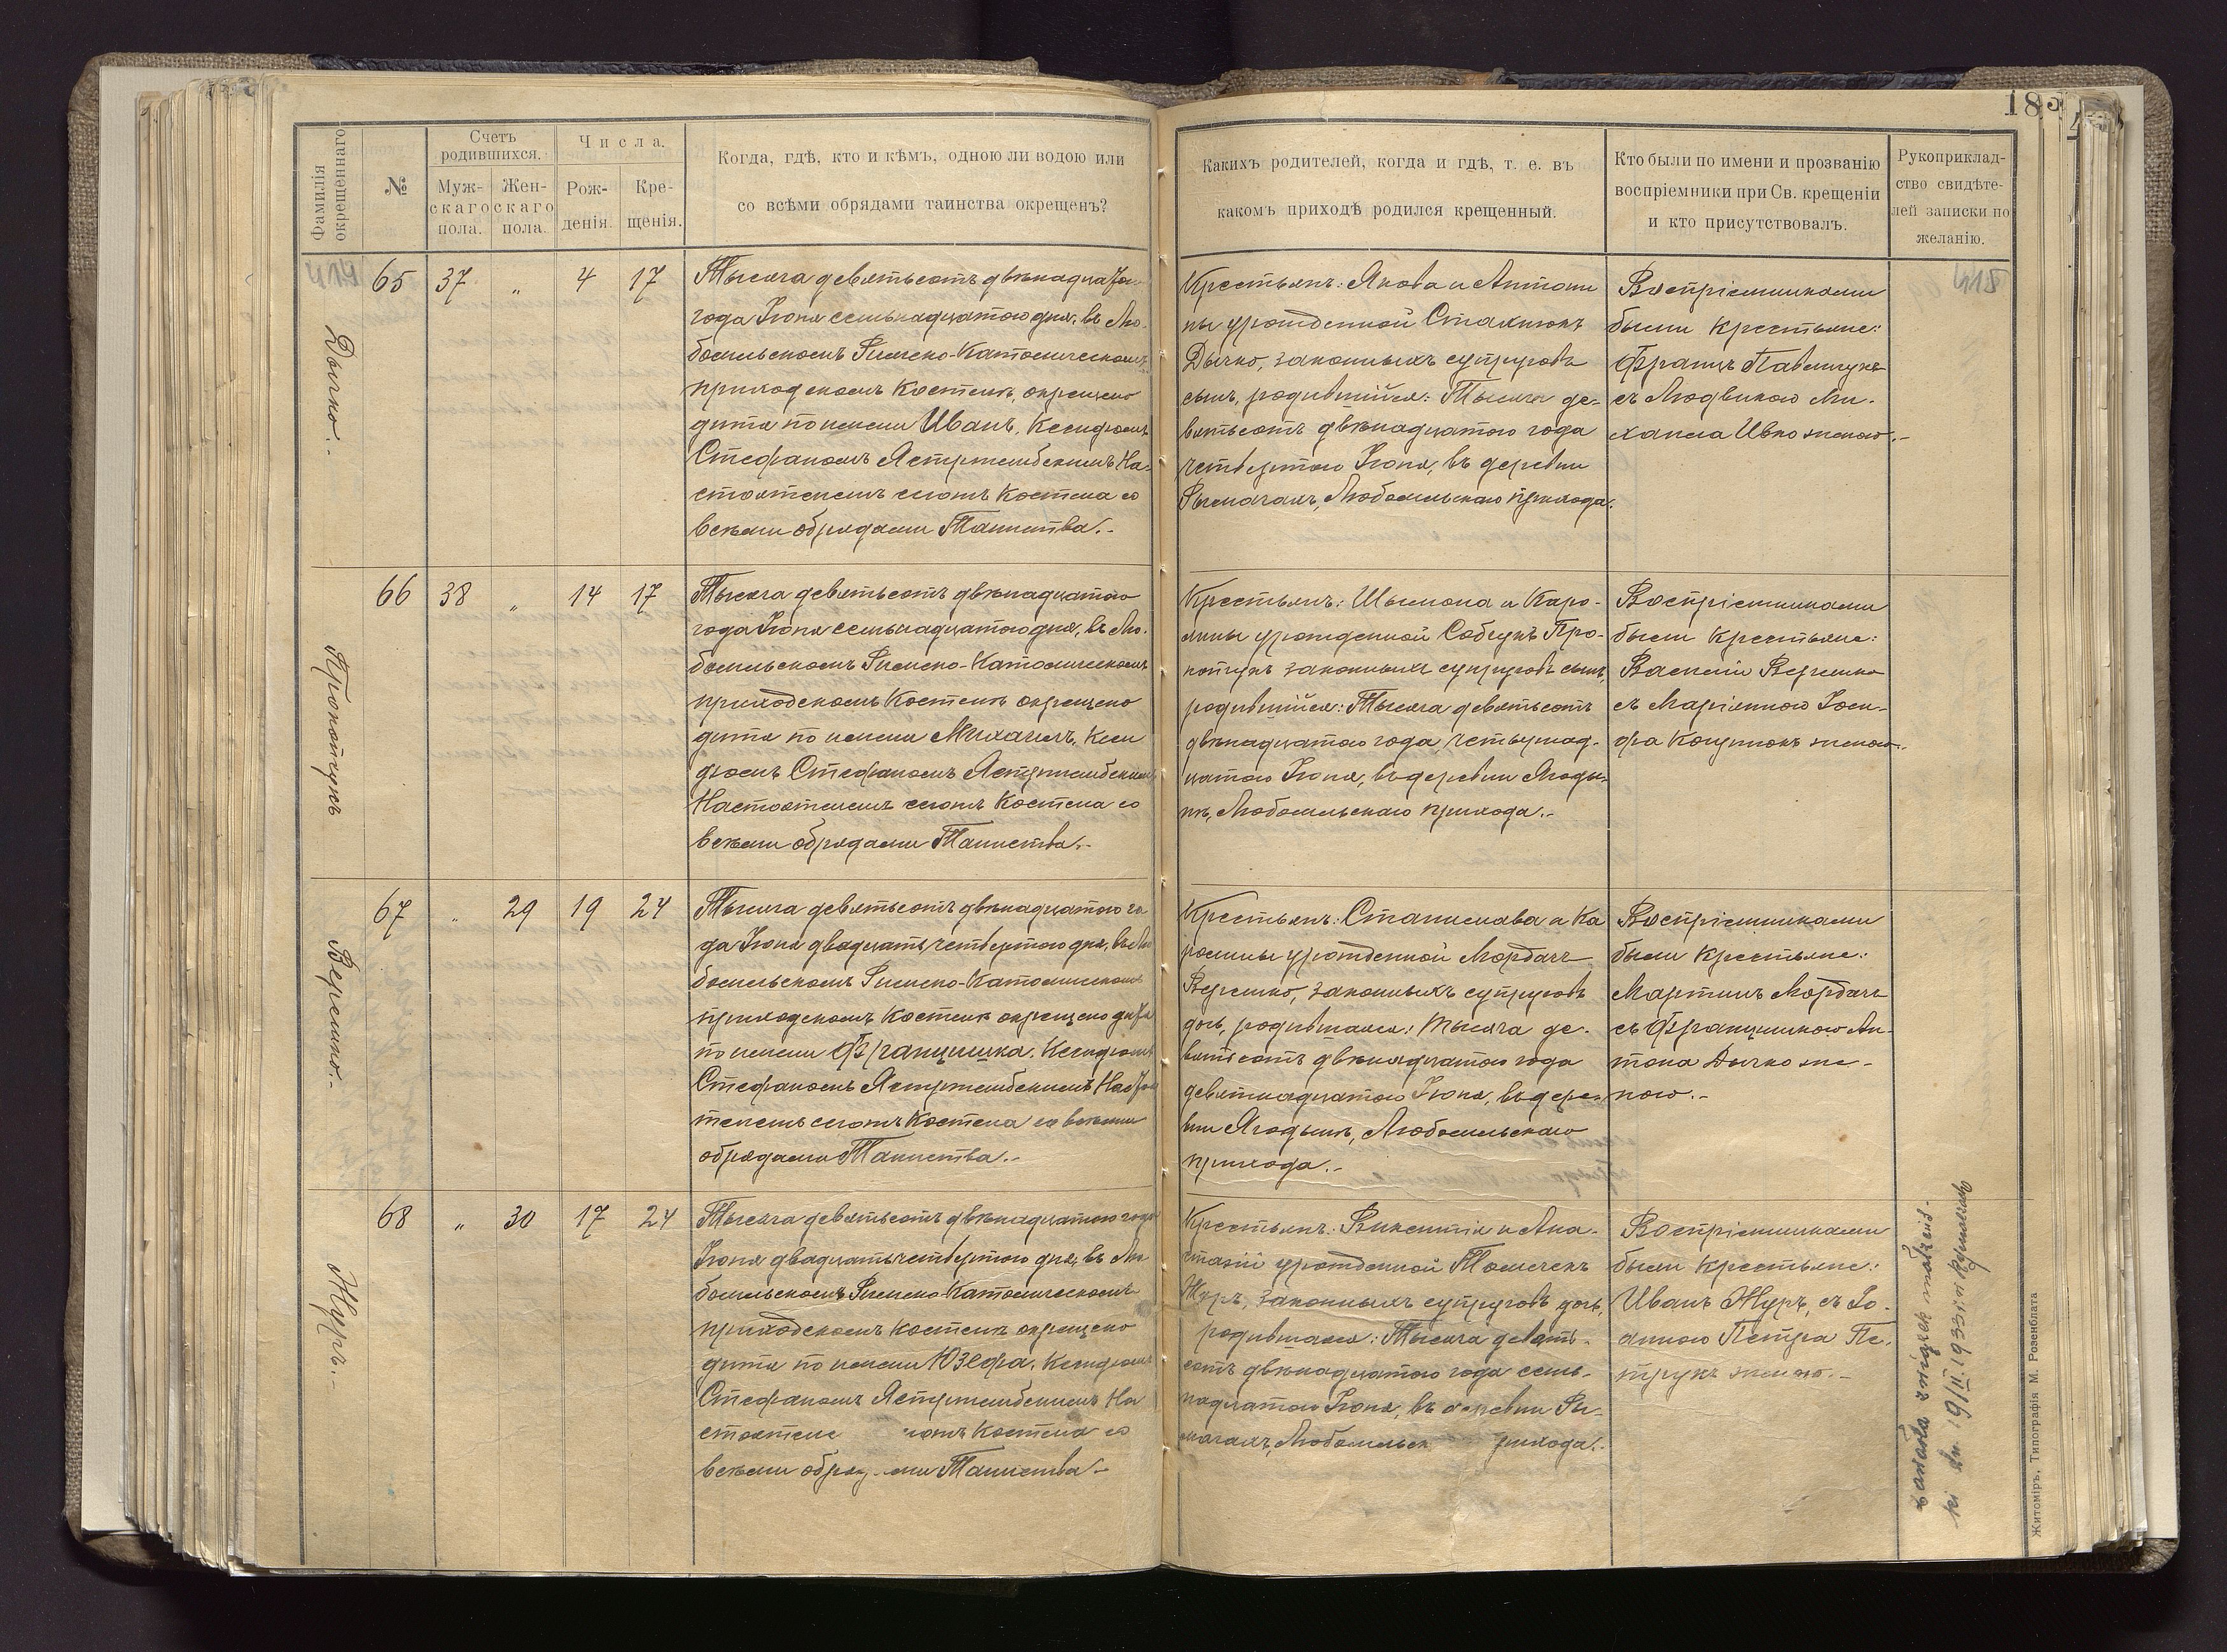 185
Фамилія окрещеннаго
№
Счетъ родившихся.
Мужскаго пола.
Женскаго пола.
Числа.
Рожденія.
Крещенія.
Когда, гдѣ, кто и кѣмъ, одною ли водою или
со всѣми обрядами таинства окрещенъ?
Какихъ родителей, когда и гдѣ, т. е. въ
какомъ приходѣ родился крещенный.
Кто были по имени и прозванію
воспріемники при Св. крещеніи
и кто присутствовалъ.
Рукоприклад-
ство свидѣте-
лей записки по
желанію.
414
418
Дычко.
65 37 „ 4 17
Тысяча девятьсотъ двѣнадцато
года Іюня семьнадцатого дня, въ Лю-
бомльскомъ Римско-Католическомъ
приходскомъ Костелѣ, окрещено
дитя по имени Иванъ, Ксендзомъ
Стефаномъ Ястржембскимъ На-
стоятелемъ сего Костела со
всѣми обрядами Таинства.-
Крестьянъ: Якова и Антони
ны урожденной Стахнюкъ
Дычко, законныхъ супруговъ
сынъ, родившійся: Тысяча де-
вятьсотъ двѣнадцатого года
четвертого Іюня, въ деревни
Рымачахъ, Любомльскаго прихода.
Воспріемниками
были крестьяне:
Францъ Павлищукъ
съ Людвикою Ми-
хаила Ивко женою.-
Прокопукъ
66 38 „ 14 17
Тысяча девятьсотъ двѣнадцатого
года Іюня семьнадцатого дня, въ Лю-
бомльскомъ Римско-Католическомъ
приходскомъ Костелѣ окрещено
дитя по имени Михаилъ, Ксен
дзомъ Стефаномъ Ястржембскимъ
Настоятелемъ сего Костела со
всѣми обрядами Таинства.-
Крестьянъ: Шымона и Каро-
лины урожденной Собчукъ Про-
копукъ законныхъ супруговъ сынъ,
родившійся: Тысяча девятьсотъ
двѣнадцатого года, четырнад-
цатого Іюня, въ деревни Ягоды-
нѣ, Любомльскаго прихода.-
Воспріемниками
были крестьяне:
Василій Веремко
съ Маріянною Іоси-
фа женою.-
Веремко.-
67 „ 29 19 24
Тысяча девятьсотъ двѣнадцатого го
да Іюня двадцать четвертого дня, въ Лю
бомльскомъ Римско-Католическомъ
приходскомъ Костелѣ окрещено дитя
по имени Францишка, Ксендзомъ
Стефаномъ Ястржембскимъ Настоя
телемъ сего Костела со всѣми
обрядами Таинства.-
Крестьянъ: Станислава и Ка
ролины урожденной Мордачъ
Веремко, законныхъ супруговъ
дочь, родившаяся: тысяча де-
вятьсотъ двѣнадцатого года
девятнадцатого Іюня, въ дере-
вни Ягодынѣ, Любомльскаго
прихода.-
Воспріемниками
были крестьяне:
Мартинъ Мордачъ
съ Францишкою Ан-
тона Дычко же-
ною.-
Журъ.-
68 „ 30 17 24
Тысяча девятьсотъ двѣнадцатого года
Іюня двадцать четвертого дня, въ Лю
бомльскомъ Римско-Католическомъ
приходскомъ Костелѣ окрещено
дитя по имени Юзефа, Ксендзомъ
Стефаномъ Ястржембскимъ На
стоятеле Костела со
всѣми обряд ми Таинства.-
Крестьянъ: Викентія и Ана-
стазіи урожденной Томчукъ
Журъ, законныхъ супруговъ дочь,
родившаяся: Тысяча девять-
сотъ двѣнадцатого года семь-
надцатого Іюня, въ деревни Ры-
мачахъ, Любомльск рихода.-
Воспріемниками
были крестьяне:
Иванъ Журъ, съ Іо-
анною Петра Пе-
трукъ женою.-
zawarła związek małżeńs-
ki dn 19/II.1933 r. w Rymaczach
Житоміръ, Типографія М. Розенблата